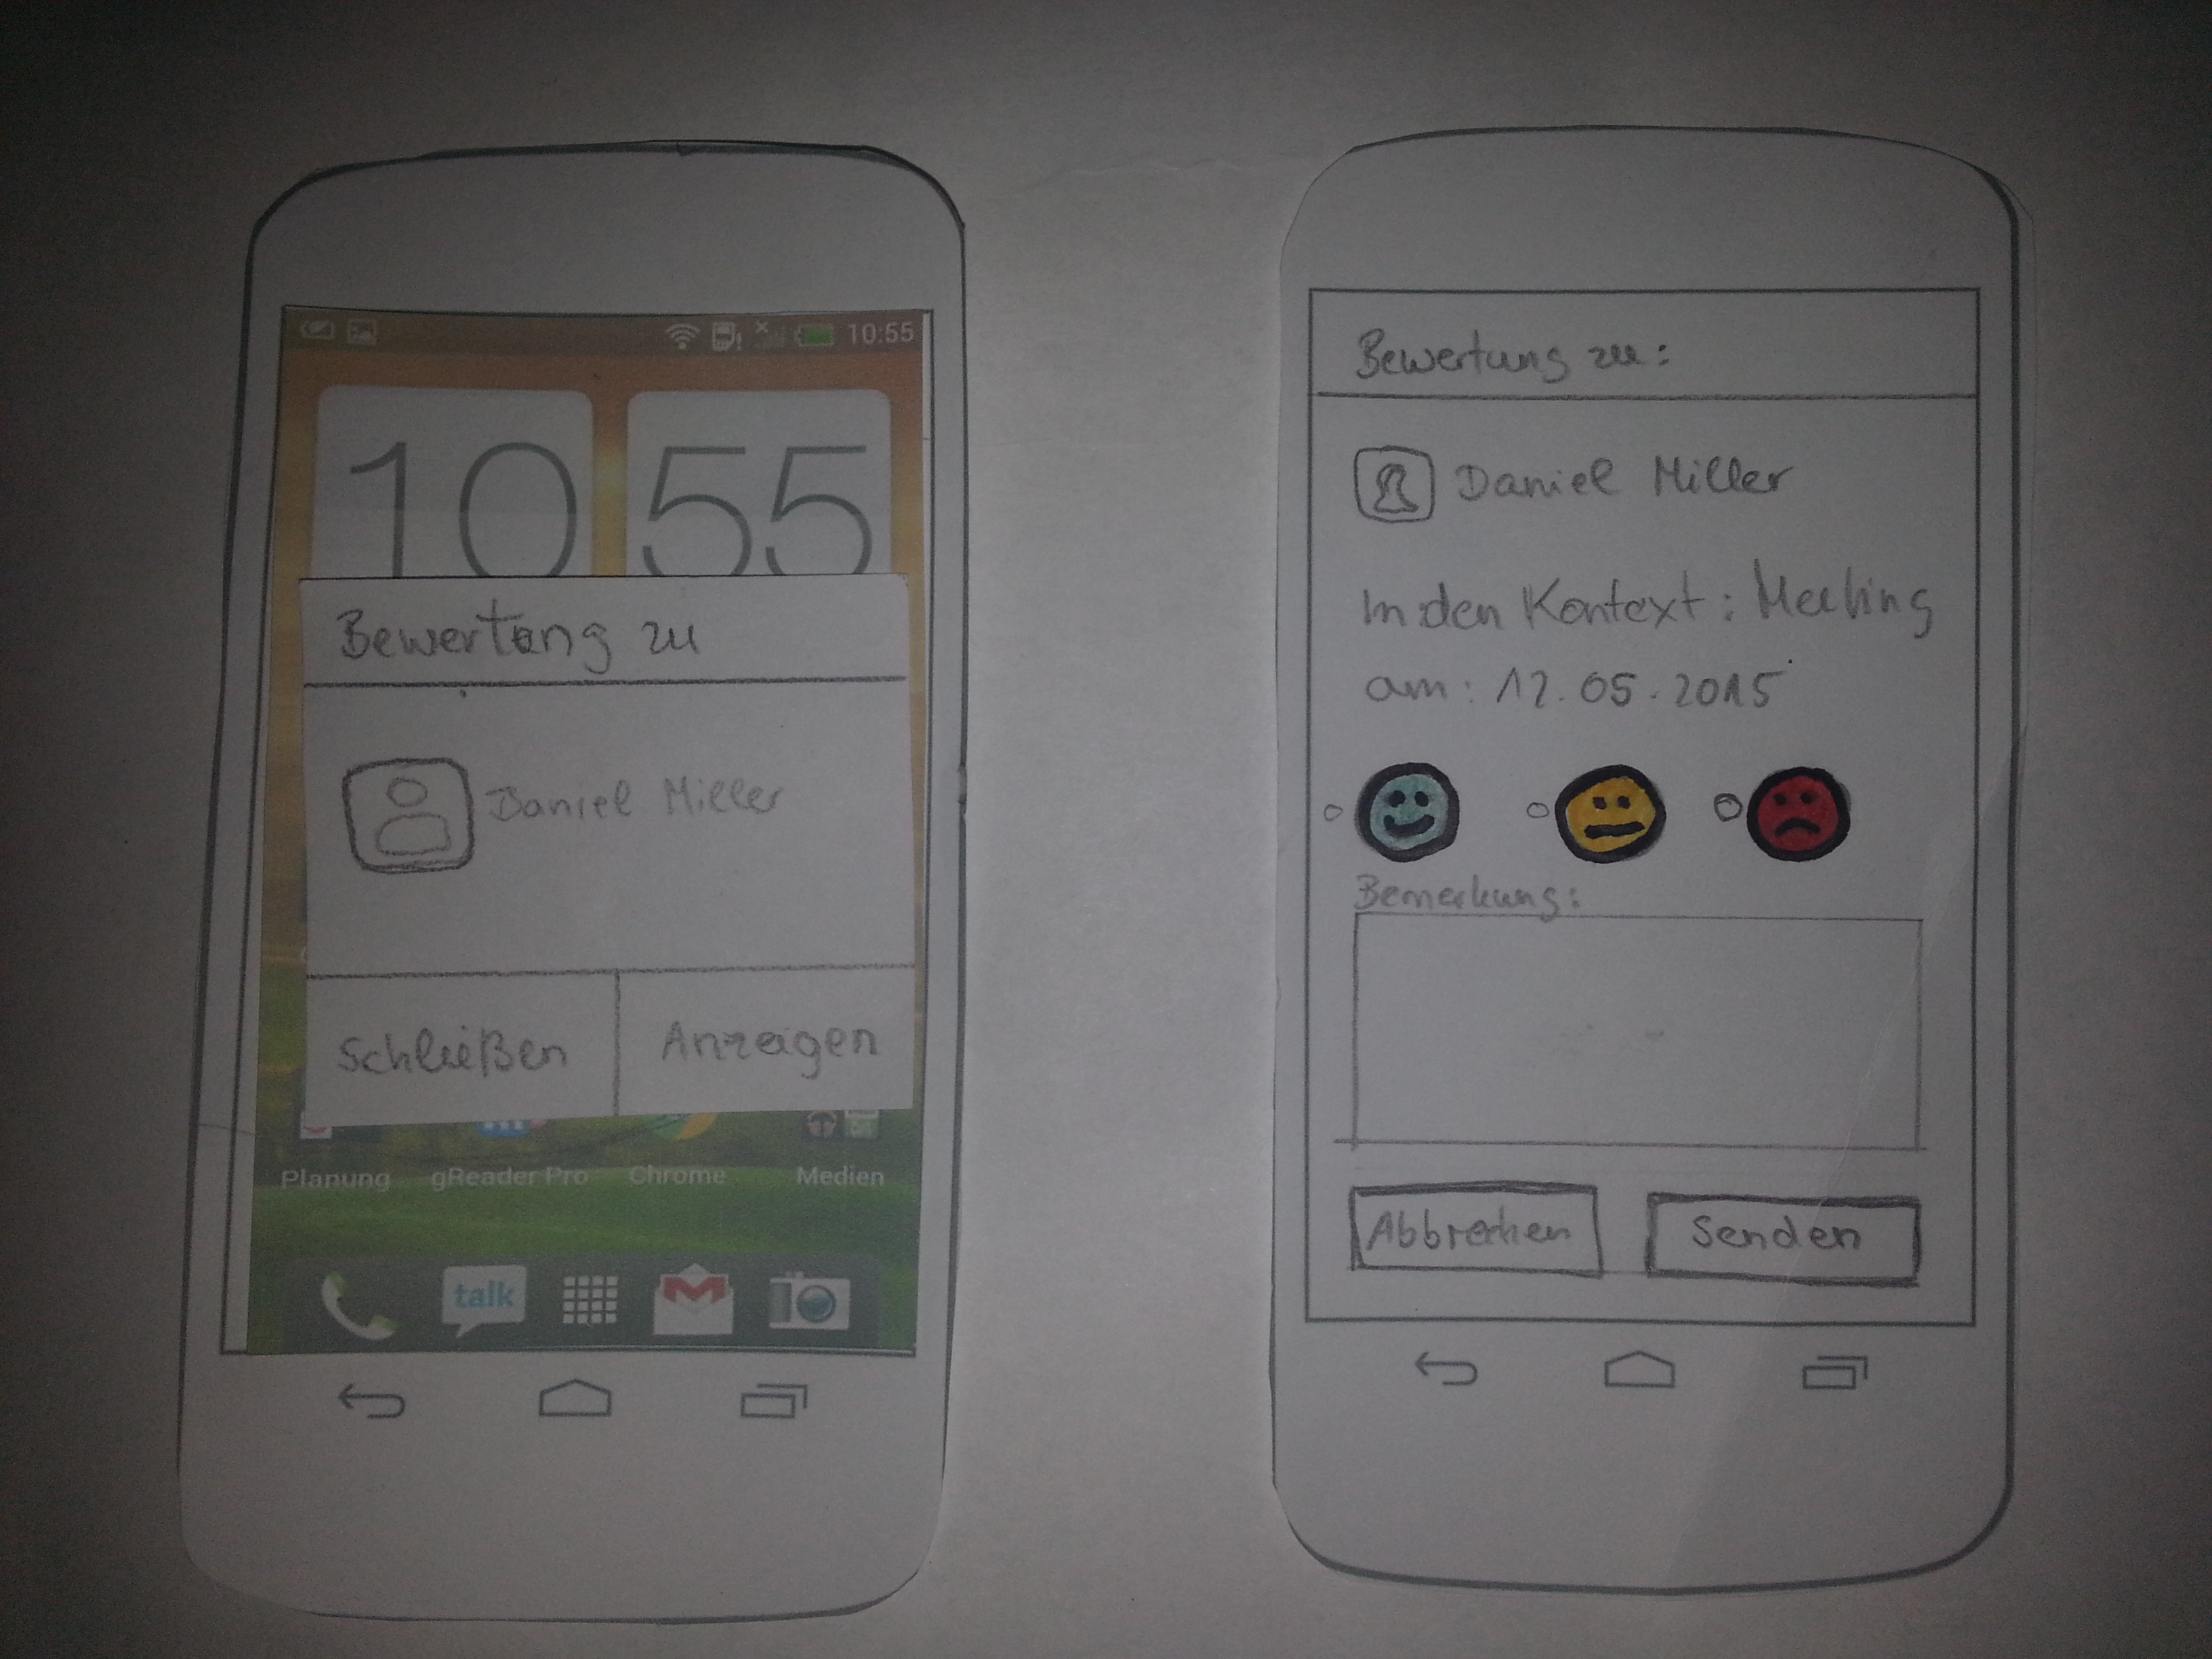 10:55
10 55
Bewertung zu
Daniel Miller
Schließen
Anzeigen
Planung
gReader Pro
Chrome
Medien
talk
Bewertung zu:
Daniel Miller
In den Kontext: Meeting
am: 12.05.2015
Bemerkung:
Abbrechen
Senden